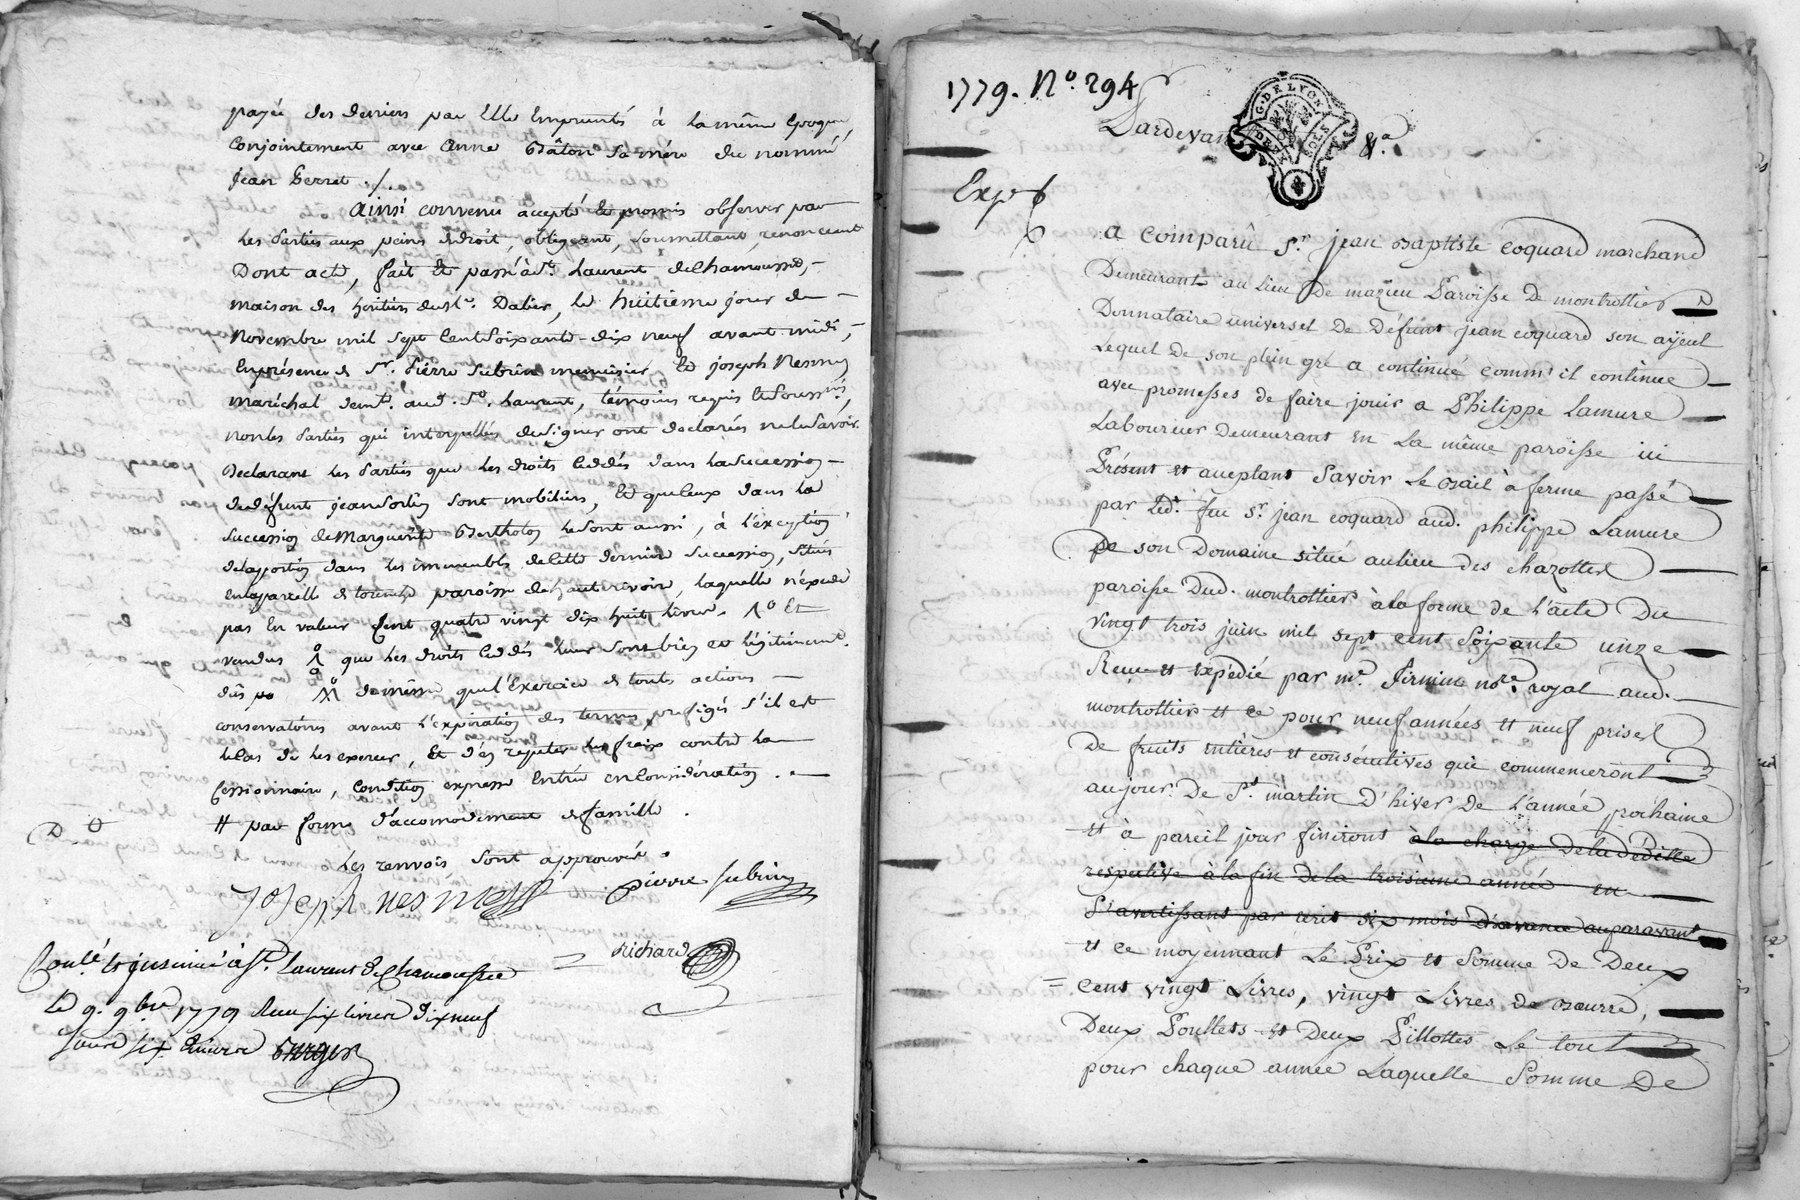 payée des deniers par Elle Empruntés à la même Epoque,
Conjointement avec Anne Bâton sa mère du nommé
Jean Perret ./.
Ainsi convenu accepté Et promis observer par
les Parties aux peines de droit, obligeant, soumettant, renonceant
Dont acte, fait Et passé à St. Laurent de Chamousset,
maison des héritiers du Sr. Dalier, le huitième jour de
Novembre mil sept Cent Soixante-dix neuf avant midi,
En présence de Sr. Pierre Subrin menuisier, Et joseph Nesmes
maréchal demt. aud. St. Laurent, témoins requis Et soussnés,
non les Parties qui interpellées de signer ont declarées ne le savoir
Declarant les Parties que les droits Cédés dans la Succession
de défunt jean sont mobiliers, Et que Ceux dans la
succession de Marguerite Bertholon le sont aussi, à l'exception
de la portion dans les immeubles de cette dernière Succession, situés
en la parcelle de paroisse de hauterivoire, laquelle n'éxcède
pas En valeur Cent quatre vingt dix huit livres. Et
vendus que les droits Cédés leur sont bien et légitimemt.
dûs de même que l'Exercice de touts actions
conservatoires avant l'expiration des termes prefigés s'il est
le Cas de les exercer, Et d'en repeter les frais contre la
Cessionnaire, condition expresse Entrée en Considération.
# par forme d'accomodement de famille.
Les renvois sont approuvés.
joseph nesmes pierre subrin
richard
Conlé Et insinué à St. Laurent de Chamousset
Le 9. 9bre 1779 Reçu six livres dix neuf
sous six deniers
1779. No. 294
Dardevan &.a
G. DE LYON
DEUX SOLS
Exp.
A Comparû Sr. jean Baptiste coquard marchand
Demeurant au Lieu De mazieu Paroisse De montrottier
Donnataire universel De Défunt jean coquard son ayeul
Lequel De son plein gré a continué comm' il continue
avec promesses de faire jouir a Philippe Lamure
Laboureur Demeurant en La même paroisse ici
Présent et acceptant Savoir Le Bail à ferme passé
par Led. feu Sr. jean coquard aud. philippe Lamure
De son Domaine situé au lieu des chazottes
paroisse Dud. montrottier à la forme de L'acte Du
vingt trois juin mil sept cent soixante unze
Reçu et expédié par me. Firmin nore. royal aud.
montrottier et ce pour neuf années et neuf prises
De fruits entières et consécutives qui commenceront
au jour De St. martin D'hiver de L'année prochaine
et à pareil jour finiront à la charge De la Dédite
respective à la fin De la troisième année en
S'avertissant par écrit six mois D'avance auparavant
et ce moyennant Le Prix et Somme De Deux
cent vingt Livres, vingt Livres de Beurre,
Deux Poullets et Deux Pillottes Le tout
pour chaque année Laquelle Somme De